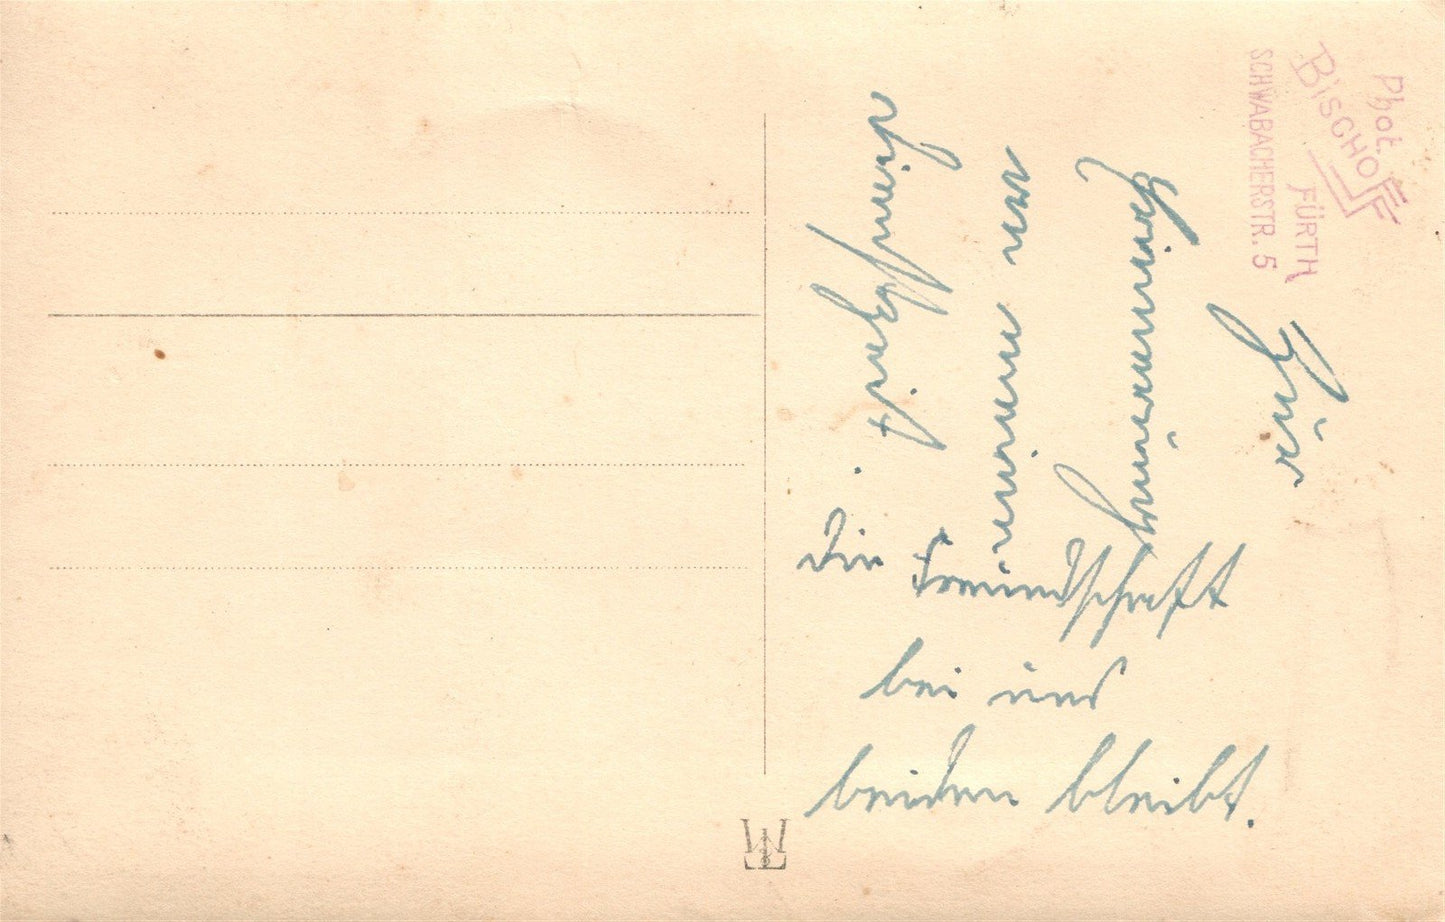 Phot.
BISCHOFF
FÜRTH
SCHWABACHERSTR. 5
Zur
Erinnerung
an meine
Dienstzeit.
Die Freundschaft
bei uns
beiden bleibt.